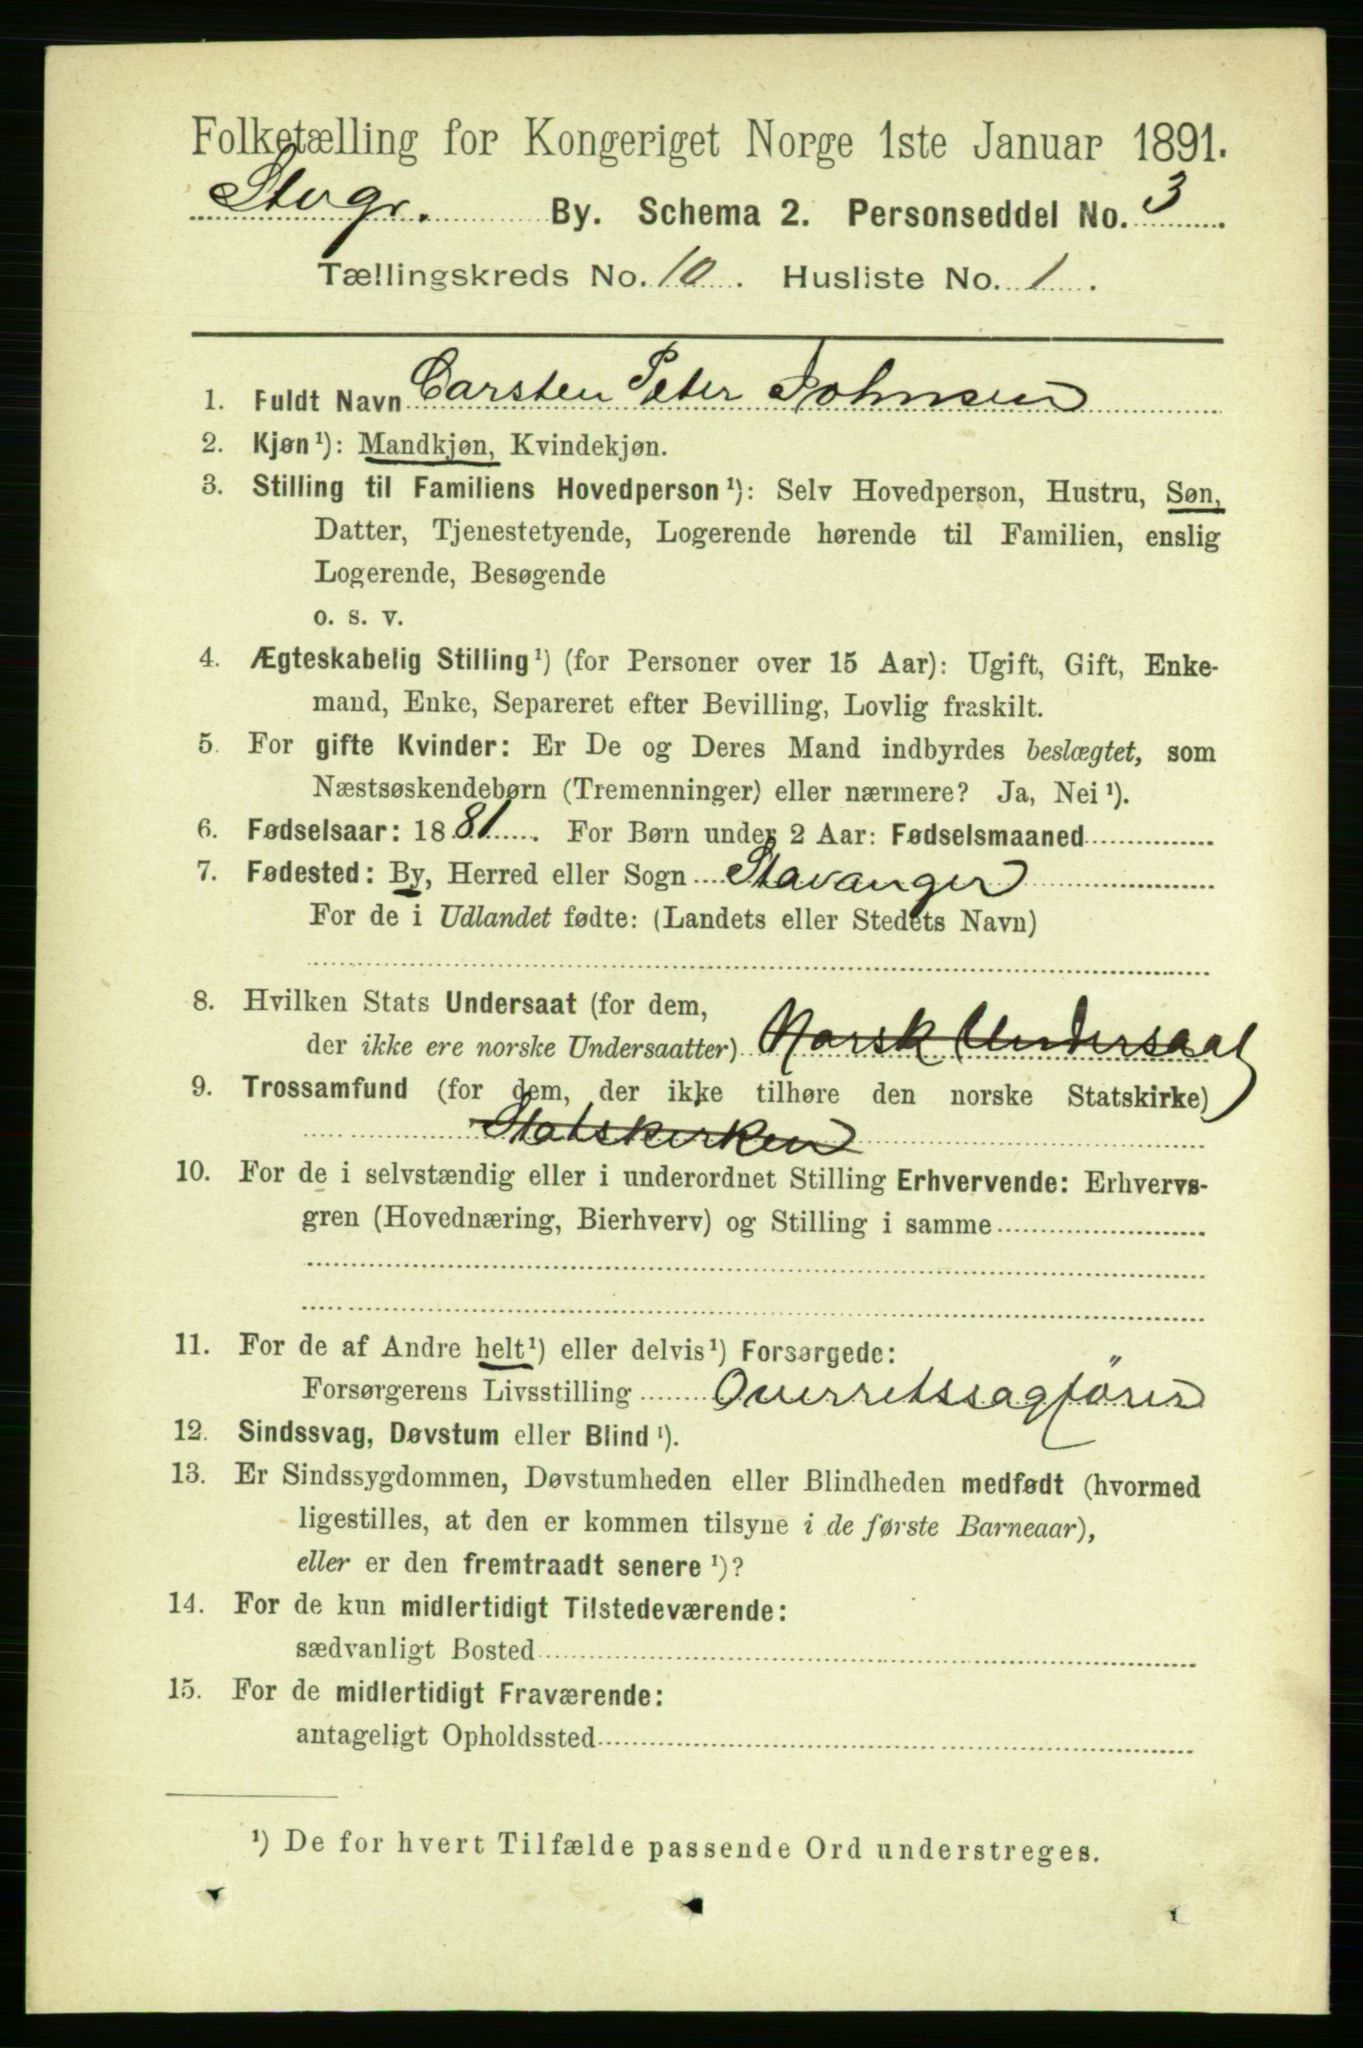 Folketælling for Kongeriget Norge 1ste Januar 1891.
Stvgr. By. Schema 2. Personseddel No. 3
Tællingskreds No. 10. Husliste No. 1.
1. Fuldt Navn Carsten Peter Johnsen
2. Kjøn¹): Mandkjøn, Kvindekjøn.
3. Stilling til Familiens Hovedperson¹): Selv Hovedperson, Hustru, Søn,
Datter, Tjenestetyende, Logerende hørende til Familien, enslig
Logerende, Besøgende
o. s. v.
4. Ægteskabelig Stilling¹) (for Personer over 15 Aar): Ugift, Gift, Enke-
mand, Enke, Separeret efter Bevilling, Lovlig fraskilt.
5. For gifte Kvinder: Er De og Deres Mand indbyrdes beslægtet, som
Næstsøskendebørn (Tremenninger) eller nærmere? Ja, Nei¹).
6. Fødselsaar: 1881. For Børn under 2 Aar: Fødselsmaaned
7. Fødested: By, Herred eller Sogn Stavanger
For de i Udlandet fødte: (Landets eller Stedets Navn)
8. Hvilken Stats Undersaat (for dem,
der ikke ere norske Undersaatter) Norsk Undersaat
9. Trossamfund (for dem, der ikke tilhøre den norske Statskirke)
Statskirken
10. For de i selvstændig eller i underordnet Stilling Erhvervende: Erhvervs-
gren (Hovednæring, Bierhverv) og Stilling i samme
11. For de af Andre helt¹) eller delvis¹) Forsørgede:
Forsørgerens Livsstilling Overretssagförer
12. Sindssvag, Døvstum eller Blind¹).
13. Er Sindssygdommen, Døvstumheden eller Blindheden medfødt (hvormed
ligestilles, at den er kommen tilsyne i de første Barneaar),
eller er den fremtraadt senere¹)?
14. For de kun midlertidigt Tilstedeværende:
sædvanligt Bosted
15. For de midlertidigt Fraværende:
antageligt Opholdssted
¹) De for hvert Tilfælde passende Ord understreges.